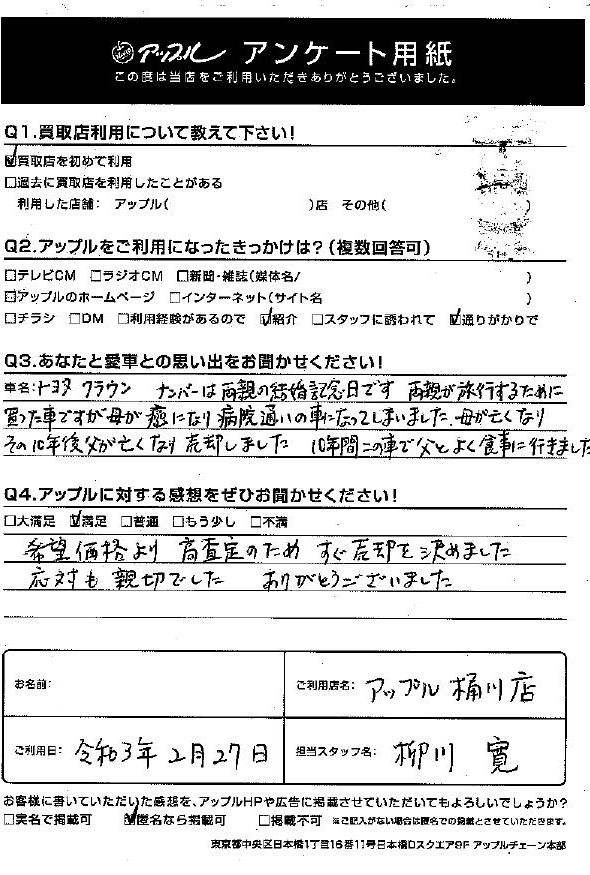 アップル アンケート用紙
この度は当店をご利用いただきありがとうございました。
Q1.買取店利用について教えて下さい!
☑買取店を初めて利用
□過去に買取店を利用したことがある
利用した店舗: アップル( )店 その他( )
Q2.アップルをご利用になったきっかけは?(複数回答可)
□テレビCM □ラジオCM □新聞・雑誌(媒体名/ )
□アップルのホームページ □インターネット(サイト名 )
□チラシ □DM □利用経験があるので ☑紹介 □スタッフに誘われて ☑通りがかりで
Q3.あなたと愛車との思い出をお聞かせください!
車名:トヨタ クラウン ナンバーは両親の結婚記念日です 両親が旅行するために
買った車ですが母が癌になり病院通いの車になってしまいました、母が亡くなり
その10年後父が亡くなり売却しました 10年間この車で父とよく食事に行きました
Q4.アップルに対する感想をぜひお聞かせください!
□大満足 ☑満足 □普通 □もう少し □不満
希望価格より 高査定のため すぐ売却を決めました
応対も親切でした ありがとうございました
お名前:
ご利用店名: アップル桶川店
ご利用日: 令和3年2月27日
担当スタッフ名: 柳川 寛
お客様に書いていただいた感想を、アップルHPや広告に掲載させていただいてもよろしいでしょうか?
□実名で掲載可 ☑匿名なら掲載可 □掲載不可 ※ご記入がない場合は匿名での掲載とさせていただきます。
東京都中央区日本橋1丁目16番11号日本橋Dスクエア9F アップルチェーン本部